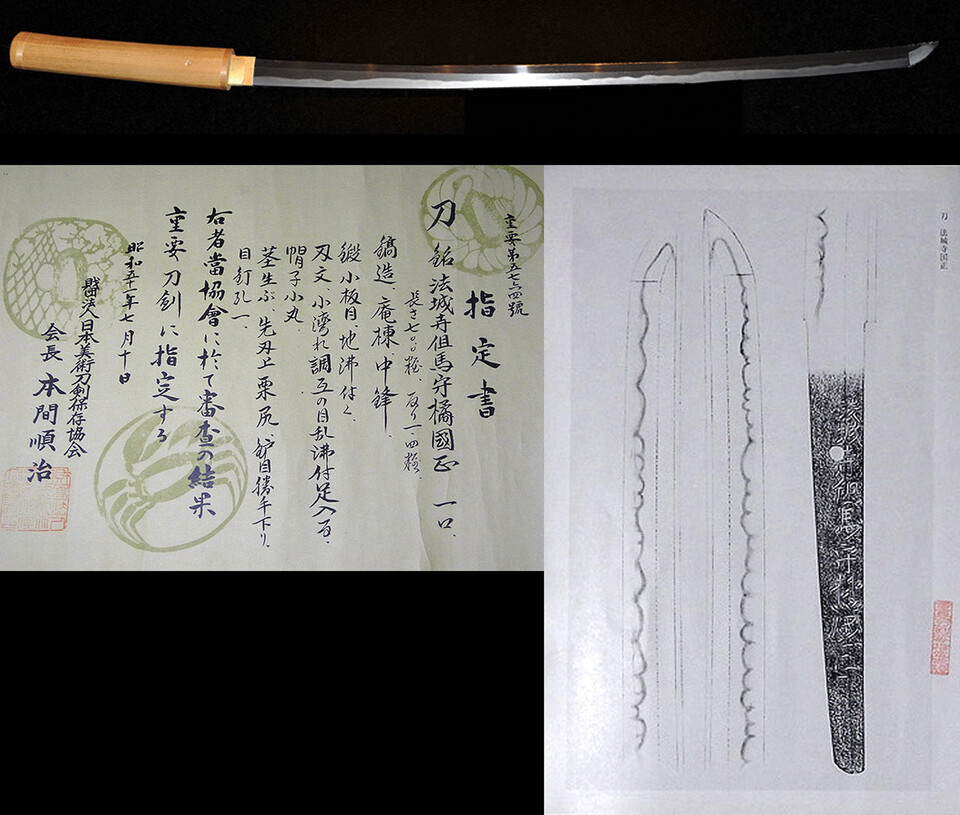 重要第五七六四號
指定書
刀 銘 法城寺但馬守橘國正 一口、
長さ七〇・〇糎、反り一・四糎、
鎬造、庵棟、中鋒、
鍛小板目、地沸付く、
刃文、小湾れ調互の目乱沸付足入る、
帽子小丸、
茎生ぶ、先刃上栗尻、鑢目勝手下り、
目釘孔一、
右者當協會に於て審査の結果
重要刀剣に指定する
昭和五十一年七月十日
財団法人日本美術刀剣保存協会
会長 本間順治
刀 法城寺国正